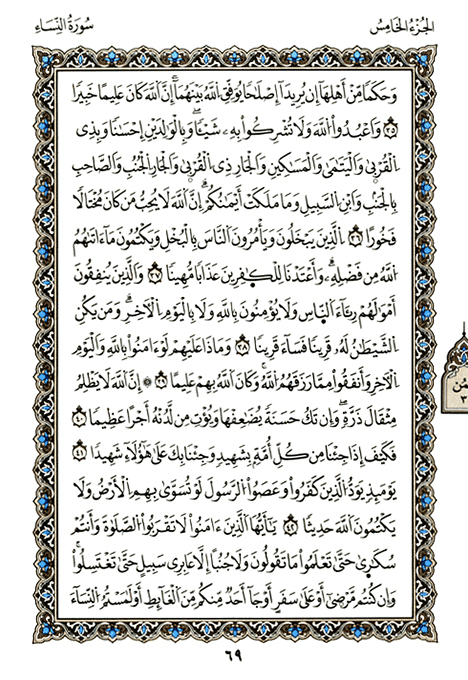 الجُزْءُ الخَامِسُ سُورَةُ النِّسَاءِ
وَحَكَمًا مِّنْ أَهْلِهَا إِن يُرِيدَا إِصْلَٰحًا يُوَفِّقِ اللَّهُ بَيْنَهُمَا ۗ إِنَّ اللَّهَ كَانَ عَلِيمًا خَبِيرًا
٣٥ وَاعْبُدُوا اللَّهَ وَلَا تُشْرِكُوا بِهِ شَيْئًا ۖ وَبِالْوَٰلِدَيْنِ إِحْسَٰنًا وَبِذِى
الْقُرْبَىٰ وَالْيَتَٰمَىٰ وَالْمَسَٰكِينِ وَالْجَارِ ذِى الْقُرْبَىٰ وَالْجَارِ الْجُنُبِ وَالصَّاحِبِ
بِالْجَنۢبِ وَابْنِ السَّبِيلِ وَمَا مَلَكَتْ أَيْمَٰنُكُمْ ۗ إِنَّ اللَّهَ لَا يُحِبُّ مَن كَانَ مُخْتَالًا
فَخُورًا ٣٦ الَّذِينَ يَبْخَلُونَ وَيَأْمُرُونَ النَّاسَ بِالْبُخْلِ وَيَكْتُمُونَ مَا ءَاتَىٰهُمُ
اللَّهُ مِن فَضْلِهِ ۗ وَأَعْتَدْنَا لِلْكَٰفِرِينَ عَذَابًا مُّهِينًا ٣٧ وَالَّذِينَ يُنفِقُونَ
أَمْوَٰلَهُمْ رِئَآءَ النَّاسِ وَلَا يُؤْمِنُونَ بِاللَّهِ وَلَا بِالْيَوْمِ الْءَاخِرِ ۗ وَمَن يَكُنِ
الشَّيْطَٰنُ لَهُ قَرِينًا فَسَآءَ قَرِينًا ٣٨ وَمَاذَا عَلَيْهِمْ لَوْ ءَامَنُوا بِاللَّهِ وَالْيَوْمِ
الْءَاخِرِ وَأَنفَقُوا مِمَّا رَزَقَهُمُ اللَّهُ ۚ وَكَانَ اللَّهُ بِهِمْ عَلِيمًا ٣٩ ۞ إِنَّ اللَّهَ لَا يَظْلِمُ
مِثْقَالَ ذَرَّةٍ ۖ وَإِن تَكُ حَسَنَةً يُضَٰعِفْهَا وَيُؤْتِ مِن لَّدُنْهُ أَجْرًا عَظِيمًا ٤٠
فَكَيْفَ إِذَا جِئْنَا مِن كُلِّ أُمَّةٍۭ بِشَهِيدٍ وَجِئْنَا بِكَ عَلَىٰ هَٰٓؤُلَآءِ شَهِيدًا ٤١
يَوْمَئِذٍ يَوَدُّ الَّذِينَ كَفَرُوا وَعَصَوُا الرَّسُولَ لَوْ تُسَوَّىٰ بِهِمُ الْأَرْضُ وَلَا
يَكْتُمُونَ اللَّهَ حَدِيثًا ٤٢ يَٰٓأَيُّهَا الَّذِينَ ءَامَنُوا لَا تَقْرَبُوا الصَّلَوٰةَ وَأَنتُمْ
سُكَٰرَىٰ حَتَّىٰ تَعْلَمُوا مَا تَقُولُونَ وَلَا جُنُبًا إِلَّا عَابِرِى سَبِيلٍ حَتَّىٰ تَغْتَسِلُوا ۚ
وَإِن كُنتُم مَّرْضَىٰٓ أَوْ عَلَىٰ سَفَرٍ أَوْ جَآءَ أَحَدٌ مِّنكُم مِّنَ الْغَآئِطِ أَوْ لَٰمَسْتُمُ النِّسَآءَ
٦٩